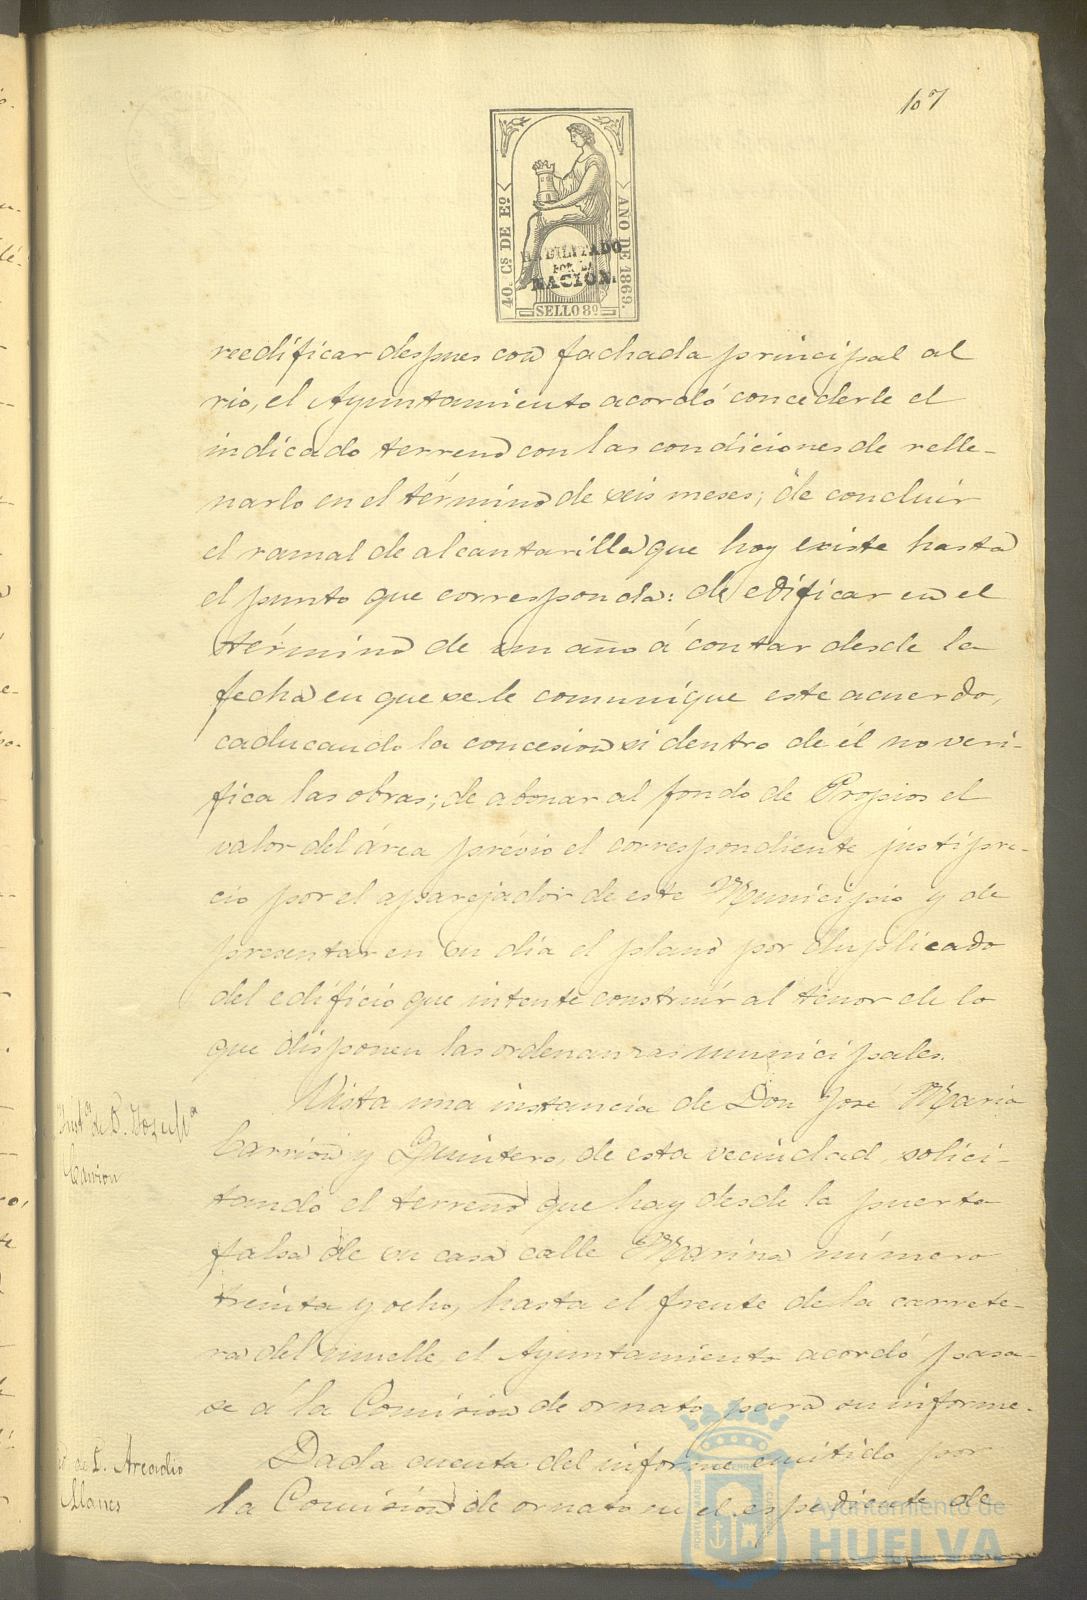 107
40. Cs DE Eo
AÑO DE 1869.
HABILITADO
POR LA
NACION.
SELLO 8º
reedificar despues con fachada principal al
rio, el Ayuntamiento acordó concederle el
indicado terreno con las condiciones de relle-
narlo en el término de seis meses; de concluir
el ramal de alcantarilla que hoy existe hasta
el punto que corresponda: de edificar en el
término de un año á contar desde la
fecha en que se le comunique este acuerdo,
caducando la concesion si dentro de él no veri-
fica las obras; de abonar al fondo de Propios el
valor del área prévio el correspondiente justipre-
cio por el aparejador de este Municipio y de
presentar en su dia el plano por duplicado
del edificio que intente construir al tenor de lo
que disponen las ordenanzas municipales.
Inst.ª de D. José Mª
Carrion
Vista una instancia de Don José Maria
Carrion y Quintero, de esta vecindad, solici-
tando el terreno que hay desde la puerta
falsa de su casa calle Marina número
treinta y ocho, hasta el frente de la carrete-
ra del muelle, el Ayuntamiento acordó pasa-
se á la Comision de ornato para su informe.
de D. Arcadio
Llanes
Dada cuenta del informe emitido por
la Comision de ornato en el espediente de
Ayuntamiento de
HUELVA